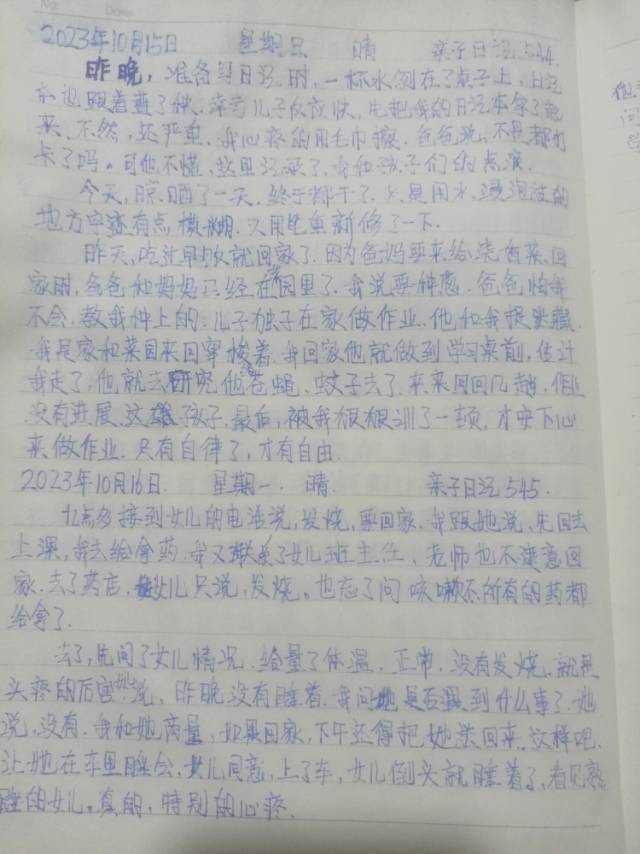 2023年10月15日 星期日 晴 亲子日记544.
昨晚，准备写日记时，一杯水倒在了桌子上，日记
本也跟着遭了秧，幸亏儿子反应快，先把我的日记本拿了起
来、不然，还严重，我心疼的用毛巾擦，爸爸说，不是都打
卡了吗。可他不懂，这里记录了，我和孩子们的点滴.
今天，晾晒了一天，终于都干了，只是用水浸泡过的
地方字迹有点模糊，又用笔重新修了一下.
昨天，吃过早饭就回家了，因为爸妈要来给浇香菜，回
家时，爸爸和妈妈已经在菜园里了，我说要种葱，爸爸怕我
不会，教我种上的，儿子独子在家做作业，他和我捉迷藏.
我是家和菜园来回穿梭着，我回家他就做到学习桌前，估计
我走了，他就去研究他苍蝇、蚊子去了，来来回回几趟，作业
没有进展，这孩子，最后，被我狠狠训了一顿，才安下心
来做作业. 只有自律了，才有自由.
2023年10月16日. 星期一. 晴 亲子日记545.
九点多接到女儿的电话说，发烧，要回家，我跟她说，先回去
上课，我去给拿药，我又联系了女儿班主任，老师也不建意回
家，去了药店，女儿只说，发烧。也忘了问咳嗽不，所有的药都
给拿了.
去了，先问了女儿情况，给量了体温，正常，没有发烧，就是
头疼的厉害，她说，昨晚没有睡着，我问她是否遇到什么事了，她
说，没有，我和她商量，如果回家，下午还得把她送回来，这样吧，
让她在车里睡会，女儿同意，上了车，女儿倒头就睡着了，看见熟
睡的女儿。真的，特别的心疼.